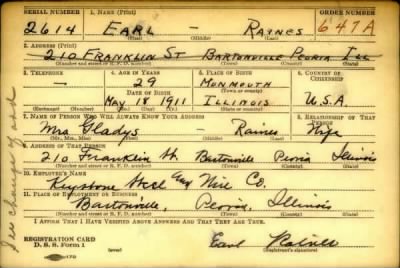 SERIAL NUMBER 1. NAME (Print) ORDER NUMBER
2614 EARL — RAINES 647A
(First) (Middle) (Last)
2. ADDRESS (Print)
210 FRANKLIN ST BARTONVILLE PEORIA ILL
(Number and street or R. F. D. number) (Town) (County) (State)
3. TELEPHONE 4. AGE IN YEARS 5. PLACE OF BIRTH 6. COUNTRY OF CITIZENSHIP
— 29 MONMOUTH
DATE OF BIRTH (Town or county)
MAY 18 1911 ILLINOIS U.S.A.
(Exchange) (Number) (Mo.) (Day) (Yr.) (State or country)
7. NAME OF PERSON WHO WILL ALWAYS KNOW YOUR ADDRESS 8. RELATIONSHIP OF THAT PERSON
Mrs Gladys — Raines Wife
(Mr., Mrs., Miss) (First) (Middle) (Last)
9. ADDRESS OF THAT PERSON
210 Franklin St. Bartonville Peoria Illinois
(Number and street or R. F. D. number) (Town) (County) (State)
10. EMPLOYER'S NAME
Keystone Steel and Wire Co.
11. PLACE OF EMPLOYMENT OR BUSINESS
Bartonville, Peoria, Illinois
(Number and street or R. F. D. number) (Town) (County) (State)
I AFFIRM THAT I HAVE VERIFIED ABOVE ANSWERS AND THAT THEY ARE TRUE.
REGISTRATION CARD
D. S. S. Form 1 Earl Raines
(Registrant's signature)